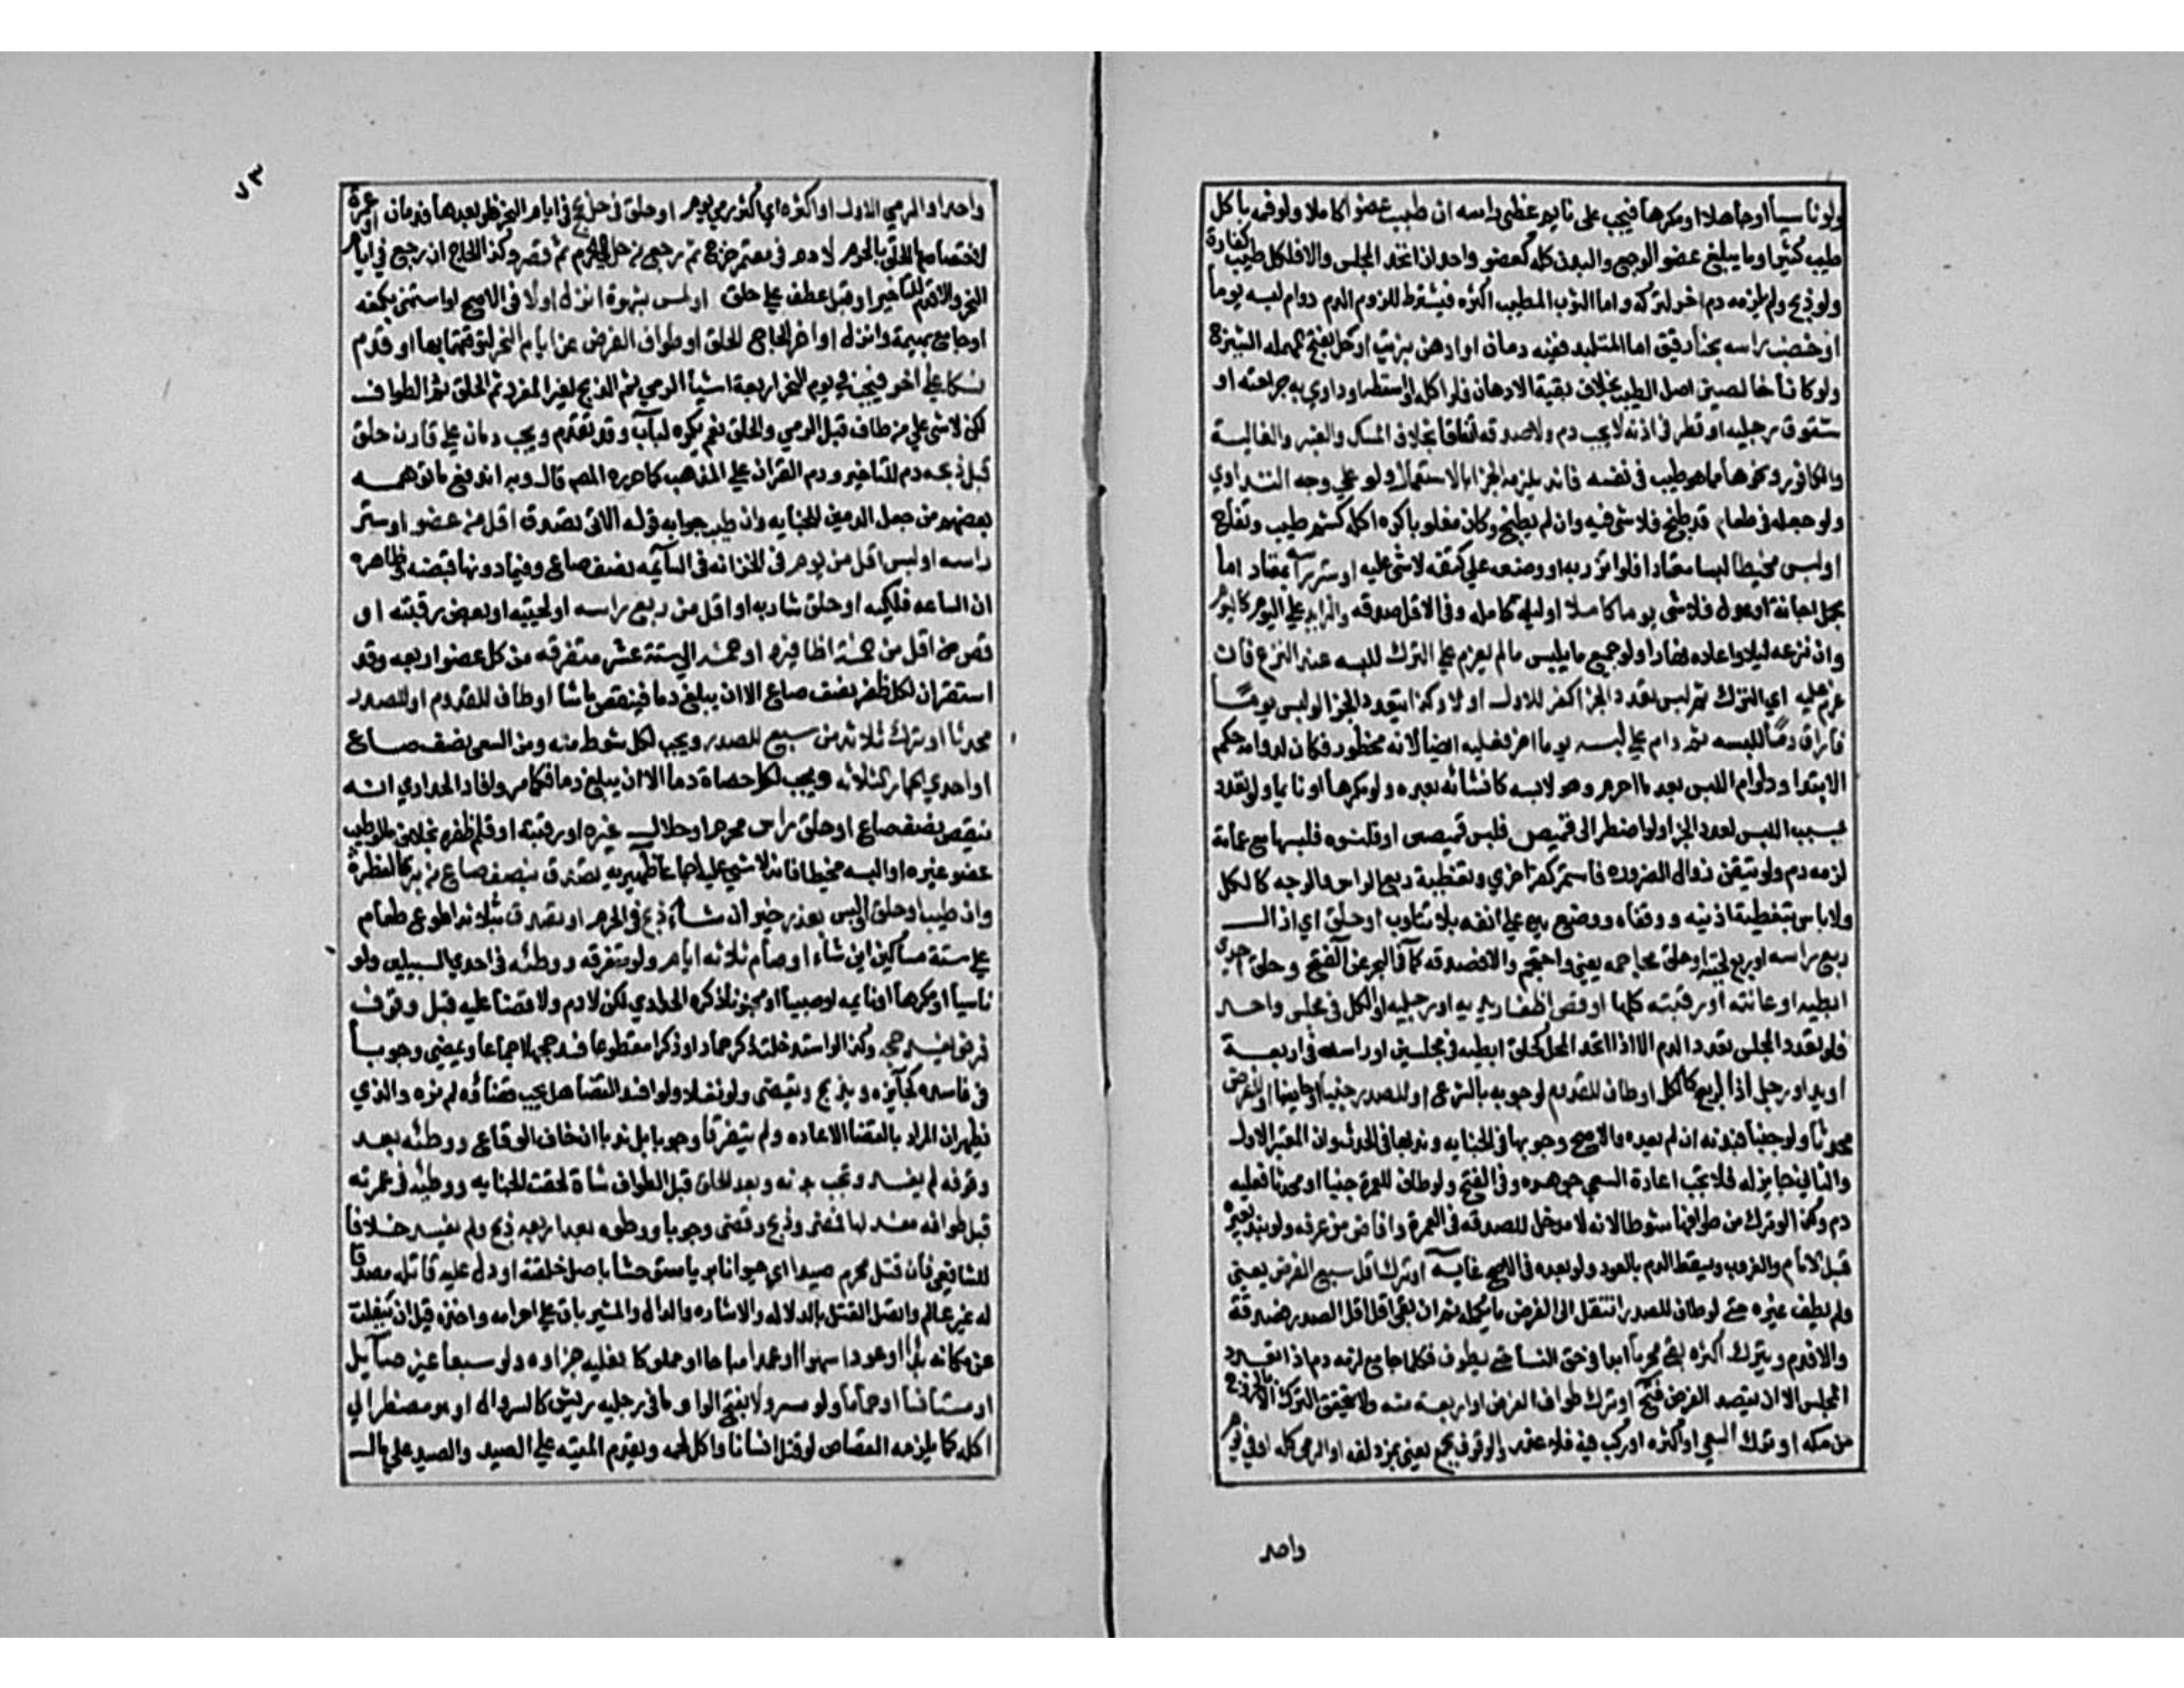 ولو ناسيا او جاهلا او مكرها فيجب على نايم غطى راسه ان طيب عضوا كاملا ولو فمه باكل
طيب كثير او ما يبلغ عضوا لو جمع والبدن كله كعضو واحد ان اتحد المجلس والا فلكل طيب كفارة
ولو ذبح ولم يزله لزمه دم اخر لتركه واما الثوب المطيب اكثره فيشترط للزوم الدم دوام لبسه يوما
او خضب راسه بحنا رقيق اما المتلبد ففيه دمان او ادهن بزيت او حل بفتح المهمله الشيرج
ولو كانا خالصين اصل الطيب بخلاف بقية الادهان فلو اكله او استعطه او داوي به جراحته او
شقوق رجليه او قطر في اذنه لا يجب دم ولا صدقه اتفاقا بخلاف المسك والعنبر والغالية
والكافور ونحوها مما هو طيب في نفسه فانه يلزمه الجزا بالاستعمال ولو على وجه التداوي
ولو جعله في طعام قد طبخ فلا شي فيه وان لم يطبخ وكان مغلوبا كره اكله كشم طيب وتفاح
او لبس مخيطا لبسا معتادا فلو اتزر به او وضعه على كتفه لا شي عليه او ستر راسه بمعتاد اما
بحمل اجانة او عدل فلا شي يوما كاملا او ليلة كامله وفي الاقل صدقه والزايد على اليوم كاليوم
وان نزعه ليلا واعاده نهارا ولو جميع ما يلبس ما لم يعزم على الترك للبسه عند النزع فان
عزم عليه اي الترك ثم لبس تعدد الجزا كفر للاول او لا وكذا يتعدد الجزا لو لبس يوما
فاراق دما للبسه ثم دام على لبسه يوما اخر فعليه ايضا لانه محظور فكان لدوامه حكم
الابتدا ودوام اللبس بعد ما احرم وهو لابسه كانشائه بعده ولو مكرها او نايما ولو تعدد
سبب اللبس تعدد الجزا ولو اضطر الى قميص فلبس قميصين او قلنسوه فلبسها مع عمامة
لزمه دم ولو تيقن زوال الضروره فاستمر كفر اخري وتغطية ربع الراس والوجه كالكل
ولا باس بتغطية اذنيه وقفاه ووضع يديه على انفه بلا ثوب او حلق اي ازال
ربع راسه او ربع لحيته او حلق محاجمه يعني واحتجم والا فصدقه كما في البحر عن الفتح وحلق احدي
ابطيه او عانته او رقبته كلها او قص اظفار يديه او رجليه او الكل في مجلس واحد
فلو تعدد المجلس تعدد الدم الا اذا اتحد المحل كحلق ابطيه في مجلسين او راسه في اربعة
او يد او رجل اذ الربع كالكل او طاف للقدوم لوجوبه بالشروع او للصدر جنبا او حايضا او للفرض
محدثا ولو جنبا فبدنه ان لم يعده والاصح وجوبها في الجنابه وندبها في الحدث وان المعتبر الاول
والثاني جابر له فلا تجب اعادة السعي جوهره وفي الفتح ولو طاف للعمرة جنبا او محدثا فعليه
دم وكذا لو ترك من طوافها شوطا لانه لا مدخل للصدقه في العمرة او افاض من عرفه ولو بند بعيره
قبل الامام والغروب ويسقط الدم بالعود ولو بعده في الاصح غاية او ترك اقل سبع الفرض يعني
ولم يطف غيره حتي لو طاف للصدر انتقل الى الفرض ما يكمله ثم ان بقي اقل الصدر فصدقة
والا فدم وبترك اكثره بقي محرما ابدا في حق النسا حتي يطوف فكلما جامع لزمه دم اذا تعدد
المجلس الا ان يقصد الرفض فتح او ترك طواف الصدر او اربعة منه ولا يتحقق الترك الا بالخروج
من مكه او ترك السعي او اكثره او ركب فيه بلا عذر او الوقوف بجمع يعني بمزدلفه او الرمي كله او في يوم
واحد
٧٣
واحد او الرمي الاول او اكثره اي اكثر رمي يوم او حلق في حل بحج في ايام النحر فلو بعدها فدمان او عمرة
لاختصاص الحلق بالحرم لا دم في معتمر خرج ثم رجع من حل الى الحرم ثم قصر وكذا الحاج ان رجع في ايام
النحر والا فدم للتاخير او قبل عطف على حلق او لمس بشهوة انزل او لا في الاصح او استمنى بكفه
او جامع بهيمة وانزل او اخر الحاج الحلق او طواف الفرض عن ايام النحر لتوقتهما بها او قدم
نسكا على اخر فيجب في يوم النحر اربعة اشيا الرمي ثم الذبح لغير المفرد ثم الحلق ثم الطواف
لكن لا شي على من طاف قبل الرمي والحلق نعم يكره لباب وقد تقدم ويجب دمان على قارن حلق
قبل ذبحه دم للتاخير ودم القران على المذهب كما حرره المص قال وبه اندفع ما توهمه
بعضهم من جعل الدمين للجنايه وان طيب جوابه قوله الاتي تصدق اقل من عضو او ستر
راسه او لبس اقل من يوم في الخزانه في الساعه نصف صاع وفيما دونها قبضه وظاهره
ان الساعه فلكيه او حلق شاربه او اقل من ربع راسه او لحيته او بعض رقبته او
قص اقل من خمسة اظافيره او خمسه الى ستة عشر متفرقه من كل عضو اربعه وقد
استقر ان لكل ظفر نصف صاع الا ان يبلغ دما فينقص ما شا او طاف للقدوم او للصدر
محدثا او ترك ثلاثه من سبع للصدر ويجب لكل شوط منه ومن السعي نصف صاع
او احدي الجمار الثلاثه ويجب لكل حصاة دما الا ان يبلغ دما فكما مر وافاد الحدادي انه
ينقص نصف صاع او حلق راس محرم او حلال غيره او رقبته او قلم ظفره بخلاف ما لو طيب
عضو غيره او البسه مخيطا فانه لا شي عليه اجماعا ظهيريه تصدق بنصف صاع من بر كالفطرة
وان طيب او حلق او لبس بعذر خير ان شاء ذبح في الحرم او تصدق بثلاثة اصوع طعام
على ستة مساكين اين شاء او صام ثلاثه ايام ولو متفرقه ووطئه في احدي السبيلين ولو
ناسيا او مكرها او نايمه او صبيا او مجنونا ذكره الحدادي لكن لا دم ولا قضا عليه قبل وقوف
فرض يفسد حجه وكذا لو استدخلت ذكر حمار او ذكرا مقطوعا فسد حجها اجماعا ويمضي وجوبا
في فاسده كجايزه ويذبح ويقضى ولو نفلا ولو افسد القضا هل يجب قضاؤه لم نره والذي
يظهر ان المراد بالقضا الاعاده ولم يتفرقا وجوبا بل ندبا ان خاف الوقاع ووطئه بعد
وقوفه لم يفسد وتجب بدنه وبعد الحلق قبل الطواف شاة لخفت الجنايه ووطئه في عمرته
قبل طوافه مفسد لها فمضى وذبح وقضى وجوبا ووطئه بعد اربعه ذبح ولم يفسد خلافا
للشافعي فان قتل محرم صيدا اي حيوانا بريا متوحشا باصل خلقته او دل عليه قاتله مصدقا
له غير عالم واتصل القتل بالدلاله والاشاره والدال والمشير باق على احرامه واخذه قبل ان ينفلت
عن مكانه بدا او عودا سهوا او عمدا مباحا او مملوكا فعليه جزاوه ولو سبعا غير صايل
او مستانسا او حماما ولو مسرولا بفتح الواو ما في رجليه ريش كالسروال او هو مضطر الى
اكله كما يلزمه القصاص لو قتل انسانا واكل لحمه ويقدم الميته على الصيد والصيد على مال